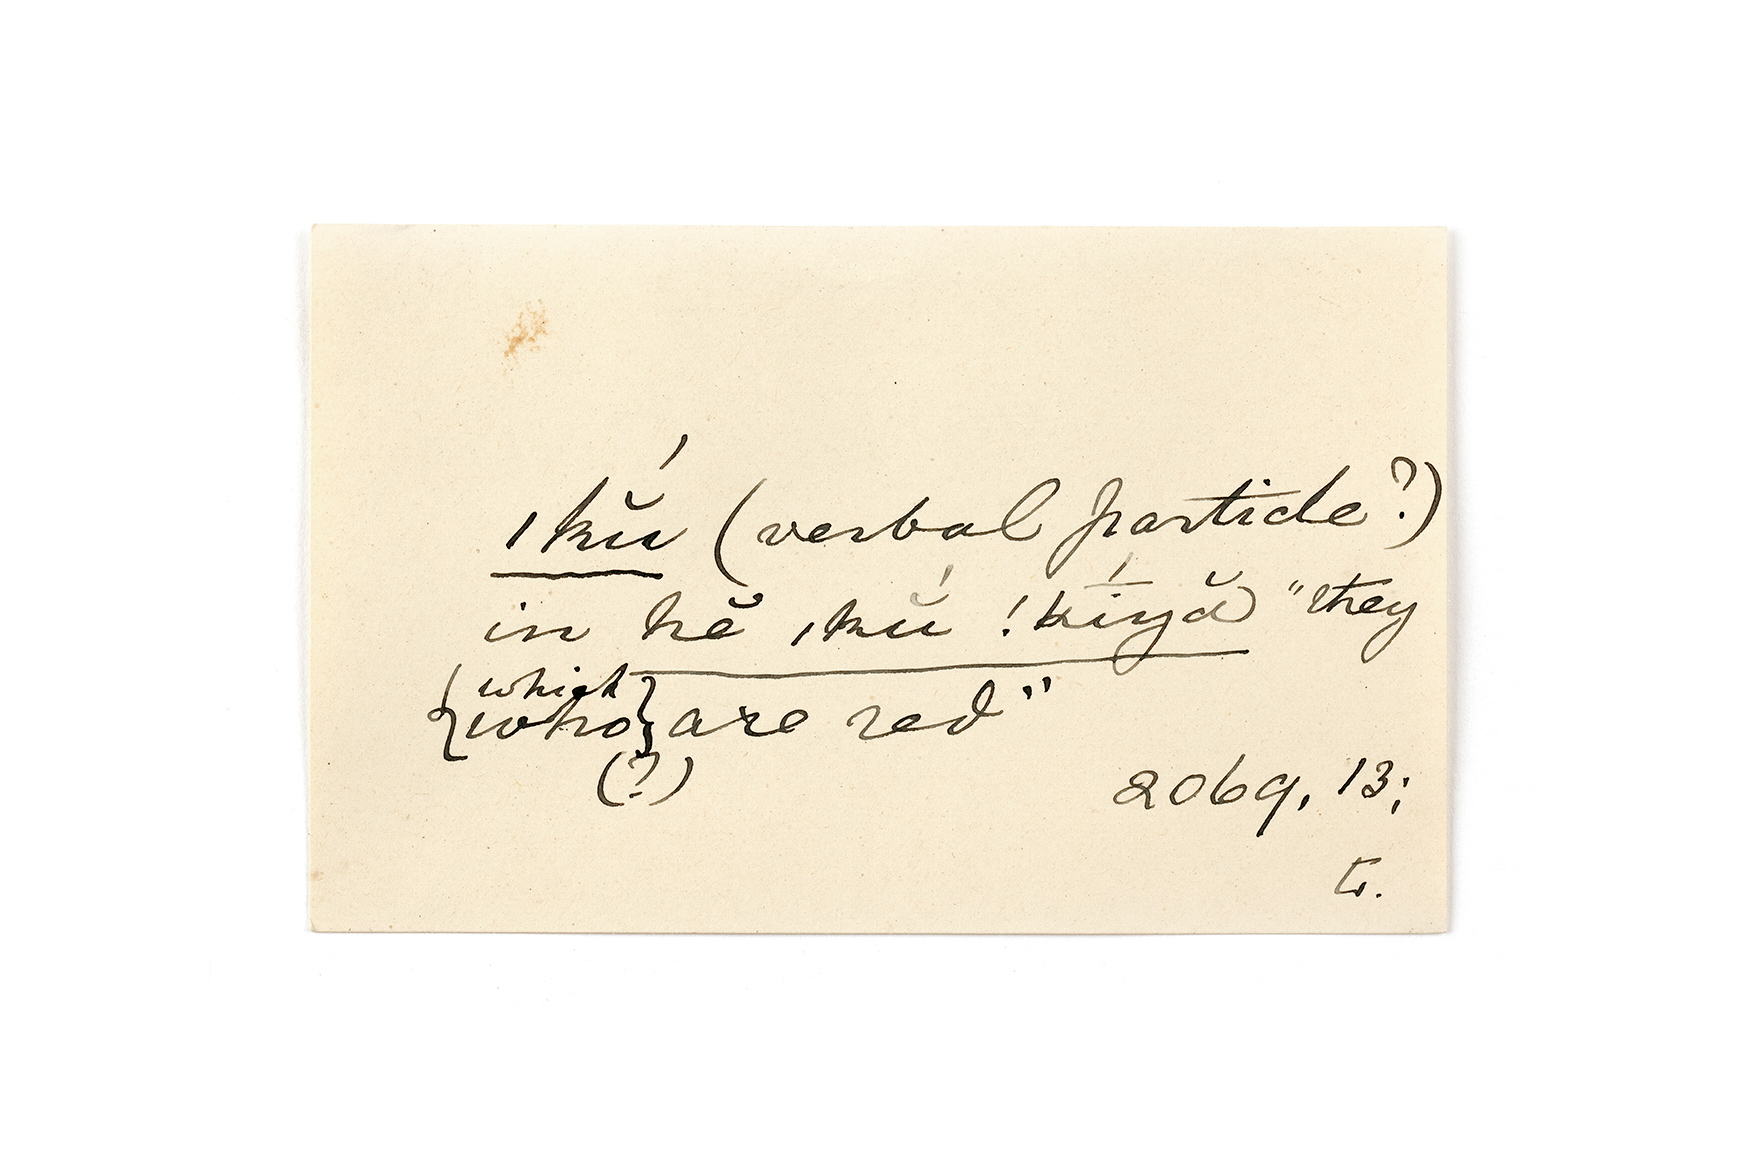 ˌkŭ́ (verbal particle?)
in hĕ ˌkŭ́ !kī́yă "they
{which
who} are red"
(?)
2069, 13;
G.